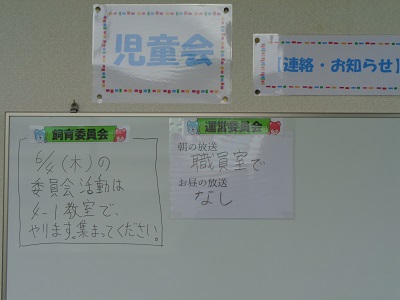 児童会
【連絡・お知らせ】
飼育委員会
6/4（木）の
委員会活動は
4-1教室で、
やります。集まってください。
運営委員会
朝の放送
職員室で
お昼の放送
なし